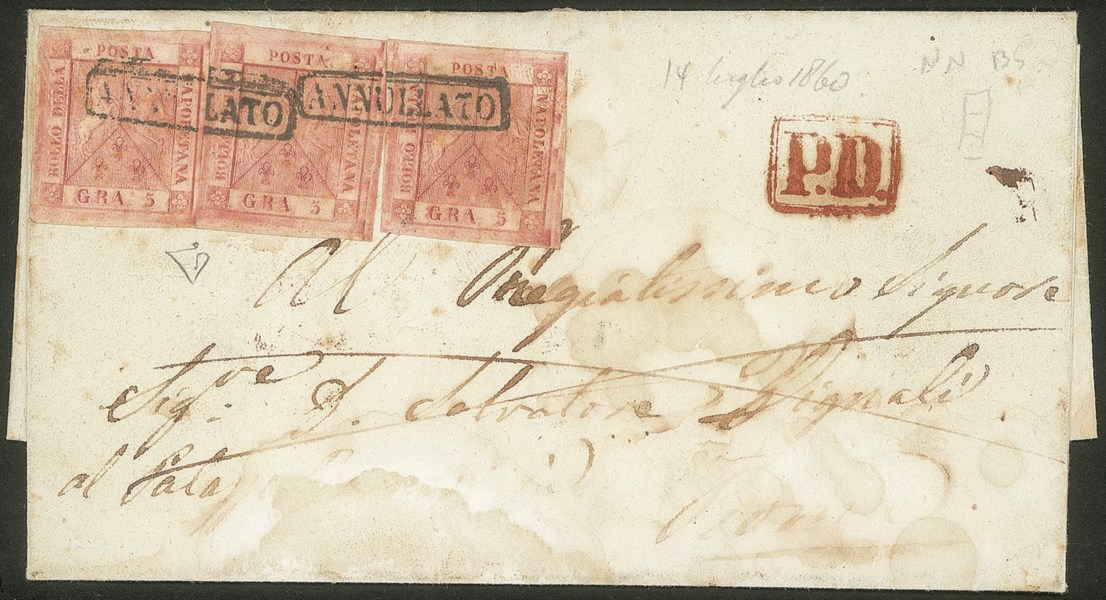 POSTA
BOLLO DELLA
NAPOLETANA
GRA 5
POSTA
BOLLO DELLA
NAPOLETANA
GRA 5
POSTA
BOLLO DELLA
NAPOLETANA
GRA 5
ANNULLATO
ANNULLATO
14 luglio 1860
NN BS
P.D.
Al Pregialissimo Signore
Sig.re D. Salvatore
al